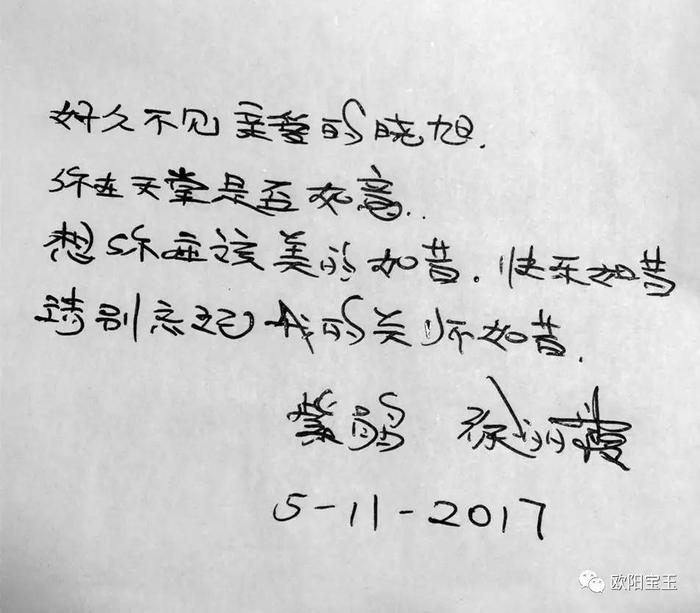 好久不见亲爱的晓旭.
你在天堂是否如意..
想你应该美的如昔.快乐如昔
请别忘记我的关怀如昔.
紫鹃 徐丽霞
5-11-2017
欧阳宝玉